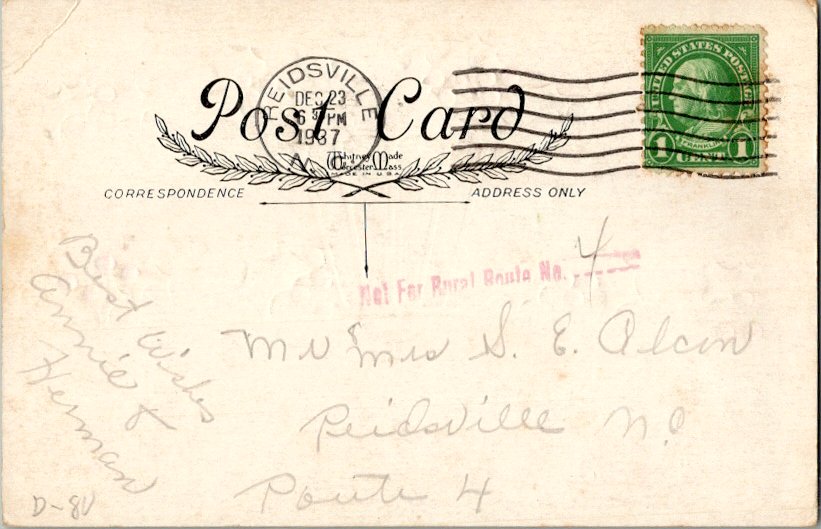 REIDSVILLE
DEC 23
6 30 PM
1937
UNITED STATES POSTAGE
FRANKLIN
1 CENT 1
Post Card
Whitney Made
Worcester Mass
MADE IN U.S.A.
CORRESPONDENCE
ADDRESS ONLY
Not For Rural Route No. 4
Best Wishes
Annie &
Herman
Mr Mrs S. E.
Reidsville N.C
Route 4
D-80